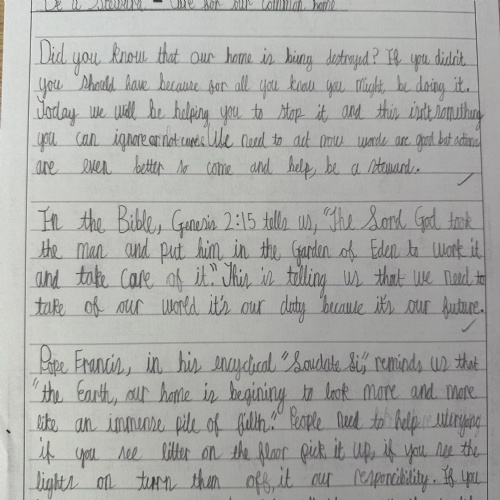 Be a Steward - Care for our common home
Did you know that our home is being destroyed? If you didn't
you should have because for all you know you might be doing it.
Today we will be helping you to stop it and this isn't something
you can ignore or not care. We need to act now words are good but actions
are even better so come and help, be a steward.
In the Bible, Genesis 2:15 tells us, "The Lord God took
the man and put him in the Garden of Eden to work it
and take care of it." This is telling us that we need to
take of our world it's our duty because it's our future.
Pope Francis, in his encyclical "Laudate Si," reminds us that
"the Earth, our home is begining to look more and more
like an immense pile of filth." People need to help
if you see litter on the floor pick it up, if you see the
lights on turn them off, it our responcibility. If you